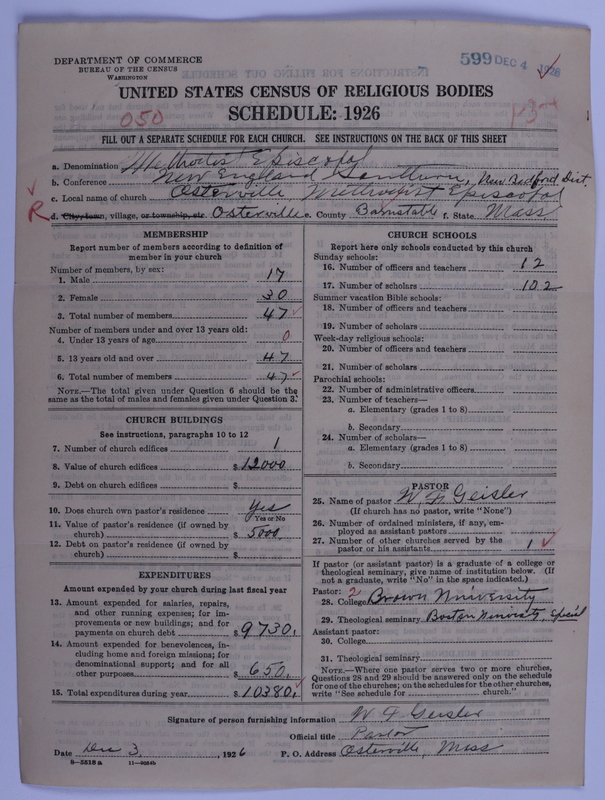 DEPARTMENT OF COMMERCE
BUREAU OF THE CENSUS
WASHINGTON
599 DEC 4 1926
UNITED STATES CENSUS OF RELIGIOUS BODIES
SCHEDULE: 1926
050
FILL OUT A SEPARATE SCHEDULE FOR EACH CHURCH. SEE INSTRUCTIONS ON THE BACK OF THIS SHEET
a. Denomination Methodist Episcopal
b. Conference New England Southern, New Bedford Dist.
c. Local name of church Osterville Methodist Episcopal
R d. City, town, village, or township, etc. Osterville e. County Barnstable f. State Mass
MEMBERSHIP
Report number of members according to definition of
member in your church
Number of members, by sex:
1. Male 17
2. Female 30
3. Total number of members 47
Number of members under and over 13 years old:
4. Under 13 years of age 0
5. 13 years old and over 47
6. Total number of members 47
NOTE.—The total given under Question 6 should be the
same as the total of males and females given under Question 3.
CHURCH BUILDINGS
See instructions, paragraphs 10 to 12
7. Number of church edifices 1
8. Value of church edifices $ 12000
9. Debt on church edifices $
10. Does church own pastor's residence Yes
Yes or No
11. Value of pastor's residence (if owned by
church) $ 5000
12. Debt on pastor's residence (if owned by
church) $
EXPENDITURES
Amount expended by your church during last fiscal year
13. Amount expended for salaries, repairs,
and other running expenses; for im-
provements or new buildings; and for
payments on church debt $ 9730.
14. Amount expended for benevolences, in-
cluding home and foreign missions; for
denominational support; and for all
other purposes $ 650.
15. Total expenditures during year $ 10380.
CHURCH SCHOOLS
Report here only schools conducted by this church
Sunday schools:
16. Number of officers and teachers 12
17. Number of scholars 102
Summer vacation Bible schools:
18. Number of officers and teachers
19. Number of scholars
Week-day religious schools:
20. Number of officers and teachers
21. Number of scholars
Parochial schools:
22. Number of administrative officers
23. Number of teachers—
a. Elementary (grades 1 to 8)
b. Secondary
24. Number of scholars—
a. Elementary (grades 1 to 8)
b. Secondary
PASTOR
25. Name of pastor W F Geisler
(If church has no pastor, write "None")
26. Number of ordained ministers, if any, em-
ployed as assistant pastors
27. Number of other churches served by the
pastor or his assistants 1
If pastor (or assistant pastor) is a graduate of a college or
theological seminary, give name of institution below. (If
not a graduate, write "No" in the space indicated.)
Pastor: 2
28. College Brown University
29. Theological seminary Boston University, Special
Assistant pastor:
30. College
31. Theological seminary
NOTE.—Where one pastor serves two or more churches,
Questions 28 and 29 should be answered only on the schedule
for one of the churches; on the schedules for the other churches,
write "See schedule for church."
Signature of person furnishing information W F Geisler
Official title Pastor
Date Dec 3, 1926 P. O. Address Osterville, Mass
8—5518a 11—9034b